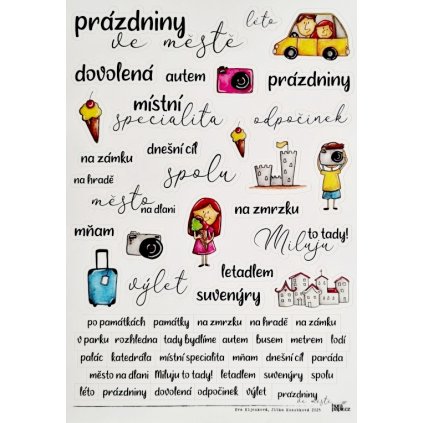 prázdniny
ve městě
léto
dovolená autem
prázdniny
místní
specialita
odpočinek
dnešní cíl
na zámku
spolu
na hradě
město
na dlani
na zmrzku
mňam
to tady!
Miluju
letadlem
výlet
suvenýry
po památkách památky na zmrzku na hradě na zámku
v parku rozhledna tady bydlíme autem busem metrem lodí
palác katedrála místní specialita mňam dnešní cíl paráda
město na dlani Miluju to tady! letadlem suvenýry spolu
léto prázdniny dovolená odpočinek výlet prázdniny
ve městě